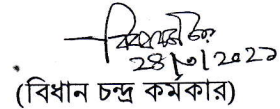 28/০/2022
(বিধান চন্দ্র কর্মকার)